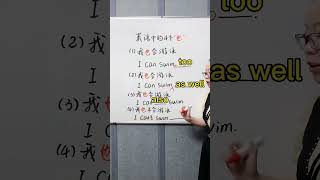 英语中的4个"也"
(1)我也会游泳
I can swim, too
(2)我也会游泳
I can swim as well
(3)我也会游泳
I can also swim
(4)我也不会游泳
I can't swim